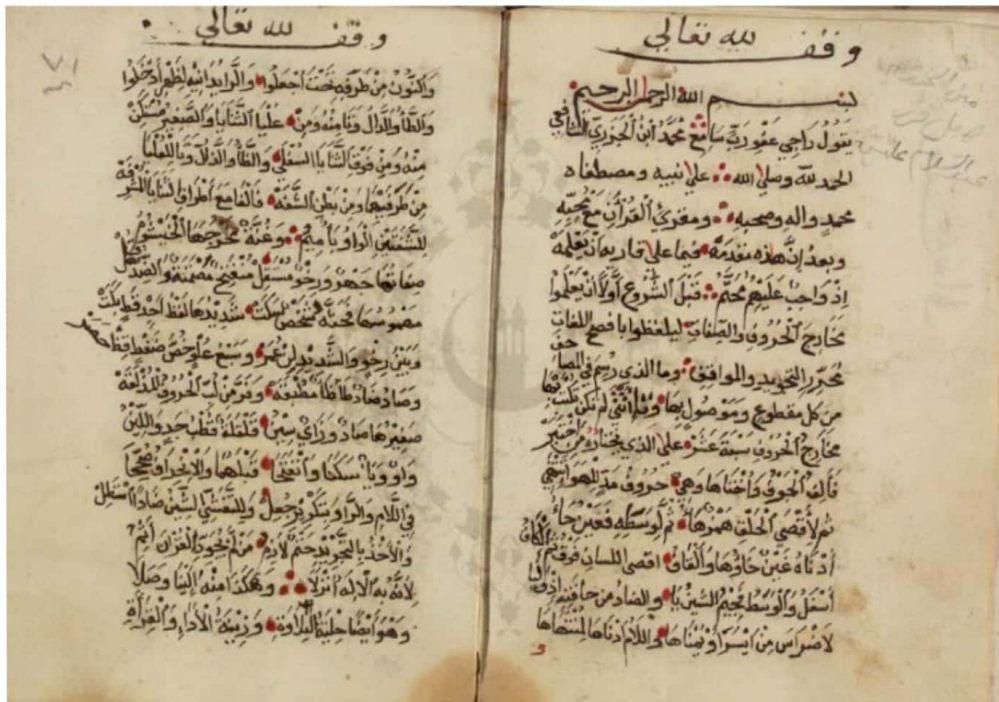 وقف لله تعالى
بسم الله الرحمن الرحيم
يقول راجي عفو رب سامع محمد ابن الجزري الشافعي
الحمد لله وصلى الله على نبيه ومصطفاه
محمد واله وصحبه ومقرئ القرآن مع محبه
وبعد إن هذه مقدمه فيما على قارئه أن يعلمه
إذ واجب عليهم محتم قبل الشروع أولا أن يعلموا
مخارج الحروف والصفات ليلفظوا بافصح اللغات
محرر التجويد والمواقف وما الذي رسم في المصاحف
من كل مقطوع وموصول بها وتاء أنثى لم تكن تكتب بها
مخارج الحروف سبعة عشر على الذي يختاره من اختبر
فألف الجوف وأختاها وهي حروف مد للهواء تنتهي
ثم لأقصى الحلق همز هاء ثم لوسطه فعين حاء
أدناه غين خاؤها والقاف أقصى اللسان فوق ثم الكاف
أسفل والوسط فجيم الشين يا والضاد من حافته إذ وليا
لاضراس من ايسر أو يمناها واللام أدناها لمنتهاها
وقف لله تعالى
٧١
والنون من طرفه تحت اجعلوا والرا يدانيه لظهر أدخلوا
والطاء والدال وتا منه ومن عليا الثنايا والصفير مستكن
منه ومن فوق الثنايا السفلى والظاء والذال وثا للعليا
من طرفيهما ومن بطن الشفه فالفا مع اطراف الثنايا المشرفه
للشفتين الواو باء ميم وغنة مخرجها الخيشوم
صفاتها جهر ورخو مستفل منفتح مصمتة والضد قل
مهموسها فحثه شخص سكت شديدها لفظ أجد قط بكت
وبين رخو والشديد لن عمر وسبع علو خص ضغط قظ حصر
وصاد ضاد طاء ظاء مطبقه وفر من لب الحروف المذلقه
صفيرها صاد وزاي سين قلقلة قطب جد واللين
واو وياء سكنا وانفتحا قبلهما والانحراف صححا
في اللام والرا وبتكرير جعل وللتفشي الشين ضادا استطل
والأخذ بالتجويد حتم لازم من لم يجود القران آثم
لأنه به الاله أنزلا وهكذا منه إلينا وصلا
وهو أيضا حلية التلاوة وزينة الأداء والقراءة